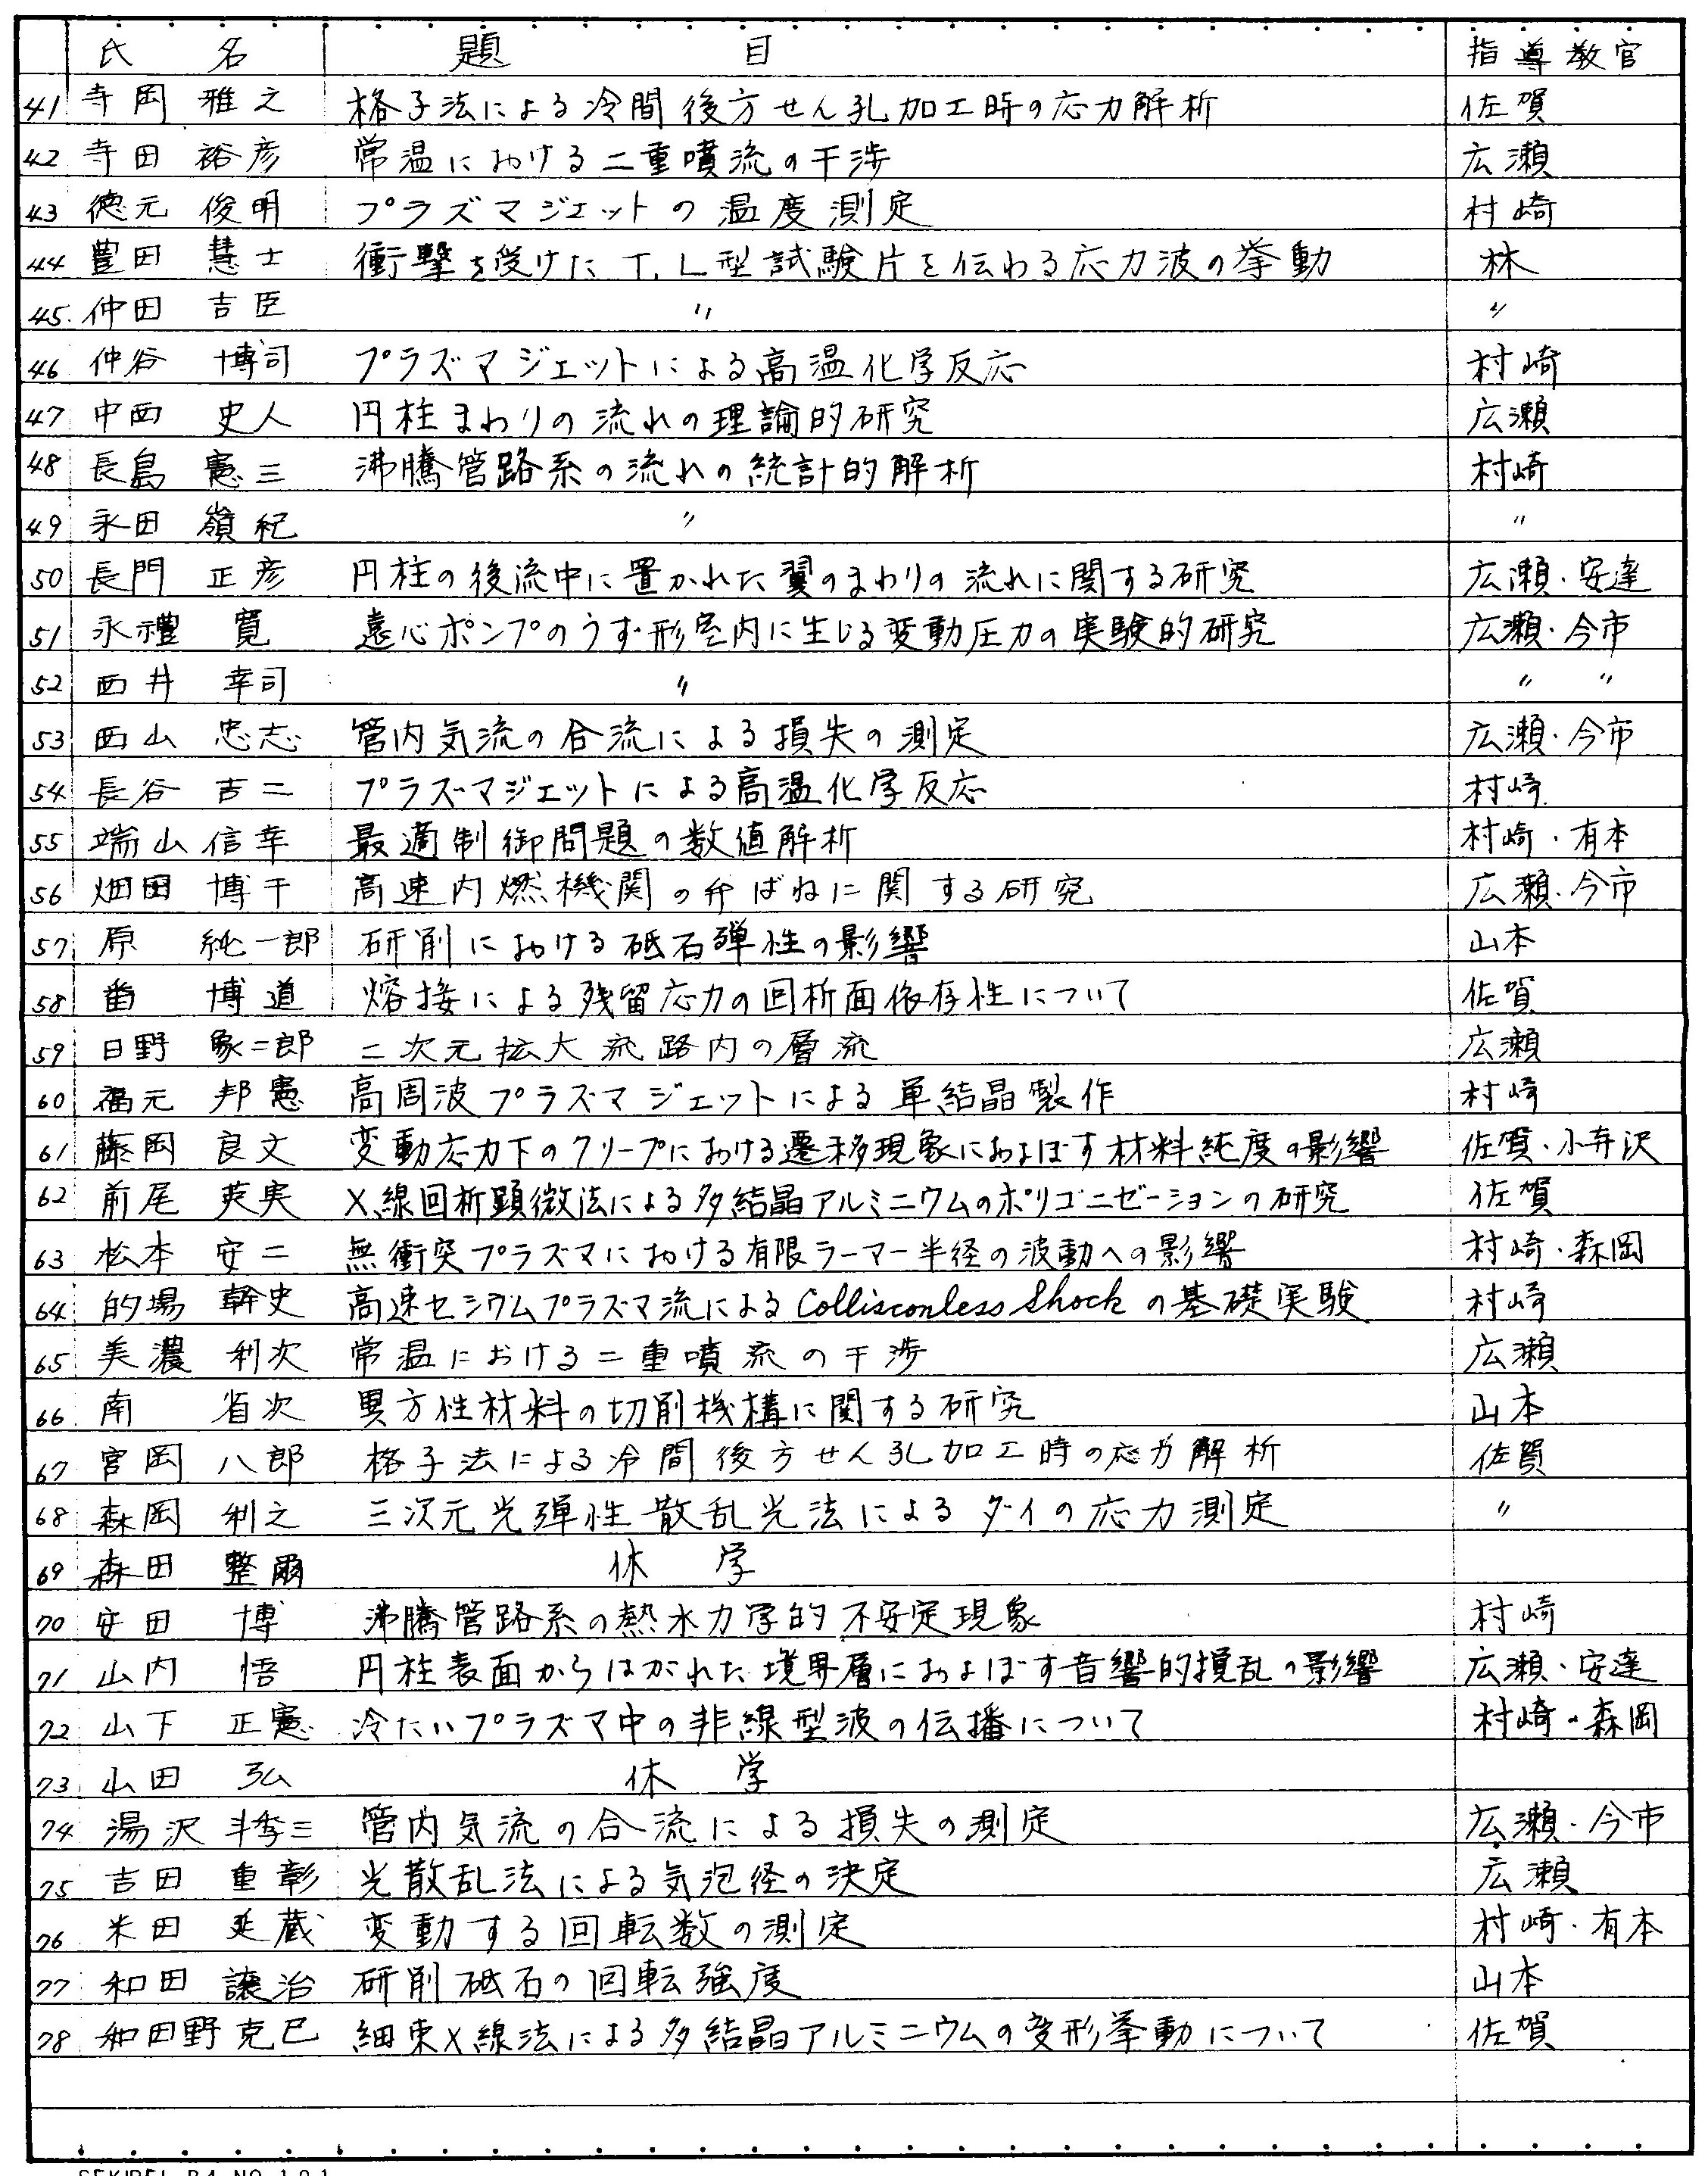 氏 名 題 目 指導教官
41 寺岡 雅之 格子法による冷間後方せん孔加工時の応力解析 佐賀
42 寺田 裕彦 常温における二重噴流の干渉 広瀬
43 徳元 俊明 プラズマジェットの温度測定 村崎
44 豊田 慧士 衝撃を受けたT.L型試験片を伝わる応力波の挙動 林
45 仲田 吉臣 〃 〃
46 仲谷 博司 プラズマジェットによる高温化学反応 村崎
47 中西 史人 円柱まわりの流れの理論的研究 広瀬
48 長島 憲三 沸騰管路系の流れの統計的解析 村崎
49 永田 嶺紀 〃 〃
50 長門 正彦 円柱の後流中に置かれた翼のまわりの流れに関する研究 広瀬・安達
51 永禮 寛 遠心ポンプのうず形室内に生じる変動圧力の実験的研究 広瀬・今市
52 西井 幸司 〃 〃 〃
53 西山 忠志 管内気流の合流による損失の測定 広瀬・今市
54 長谷 吉二 プラズマジェットによる高温化学反応 村崎
55 端山 信幸 最適制御問題の数値解析 村崎・有本
56 畑田 博干 高速内燃機関の弁ばねに関する研究 広瀬・今市
57 原 純一郎 研削における砥石弾性の影響 山本
58 番 博道 熔接による残留応力の回析面依存性について 佐賀
59 日野 象二郎 二次元拡大流路内の層流 広瀬
60 福元 邦憲 高周波プラズマジェットによる単結晶製作 村崎
61 藤岡 良文 変動応力下のクリープにおける遷移現象におよぼす材料純度の影響 佐賀・小弁沢
62 前尾 英実 X線回析顕微法による多結晶アルミニウムのポリゴニゼーションの研究 佐賀
63 松本 安二 無衝突プラズマにおける有限ラーマー半径の波動への影響 村崎・森岡
64 的場 幹史 高速セシウムプラズマ流によるCollisconless Shockの基礎実験 村崎
65 美濃 利次 常温における二重噴流の干渉 広瀬
66 南 省次 異方性材料の切削機構に関する研究 山本
67 宮岡 八郎 格子法による冷間後方せん孔加工時の応力解析 佐賀
68 森岡 利之 三次元光弾性散乱光法によるダイの応力測定 〃
69 森田 整爾 休 学
70 安田 博 沸騰管路系の熱水力学的不安定現象 村崎
71 山内 悟 円柱表面からはがれた境界層におよぼす音響的撹乱の影響 広瀬・安達
72 山下 正憲 冷たいプラズマ中の非線型波の伝播について 村崎・森岡
73 山田 弘 休 学
74 湯沢 季三 管内気流の合流による損失の測定 広瀬・今市
75 吉田 重彰 光散乱法による気泡径の決定 広瀬
76 米田 延蔵 変動する回転数の測定 村崎・有本
77 和田 譲治 研削砥石の回転強度 山本
78 和田野 克巳 細束X線法による多結晶アルミニウムの変形挙動について 佐賀